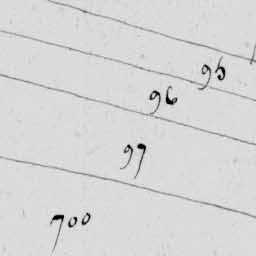 95
96
97
700